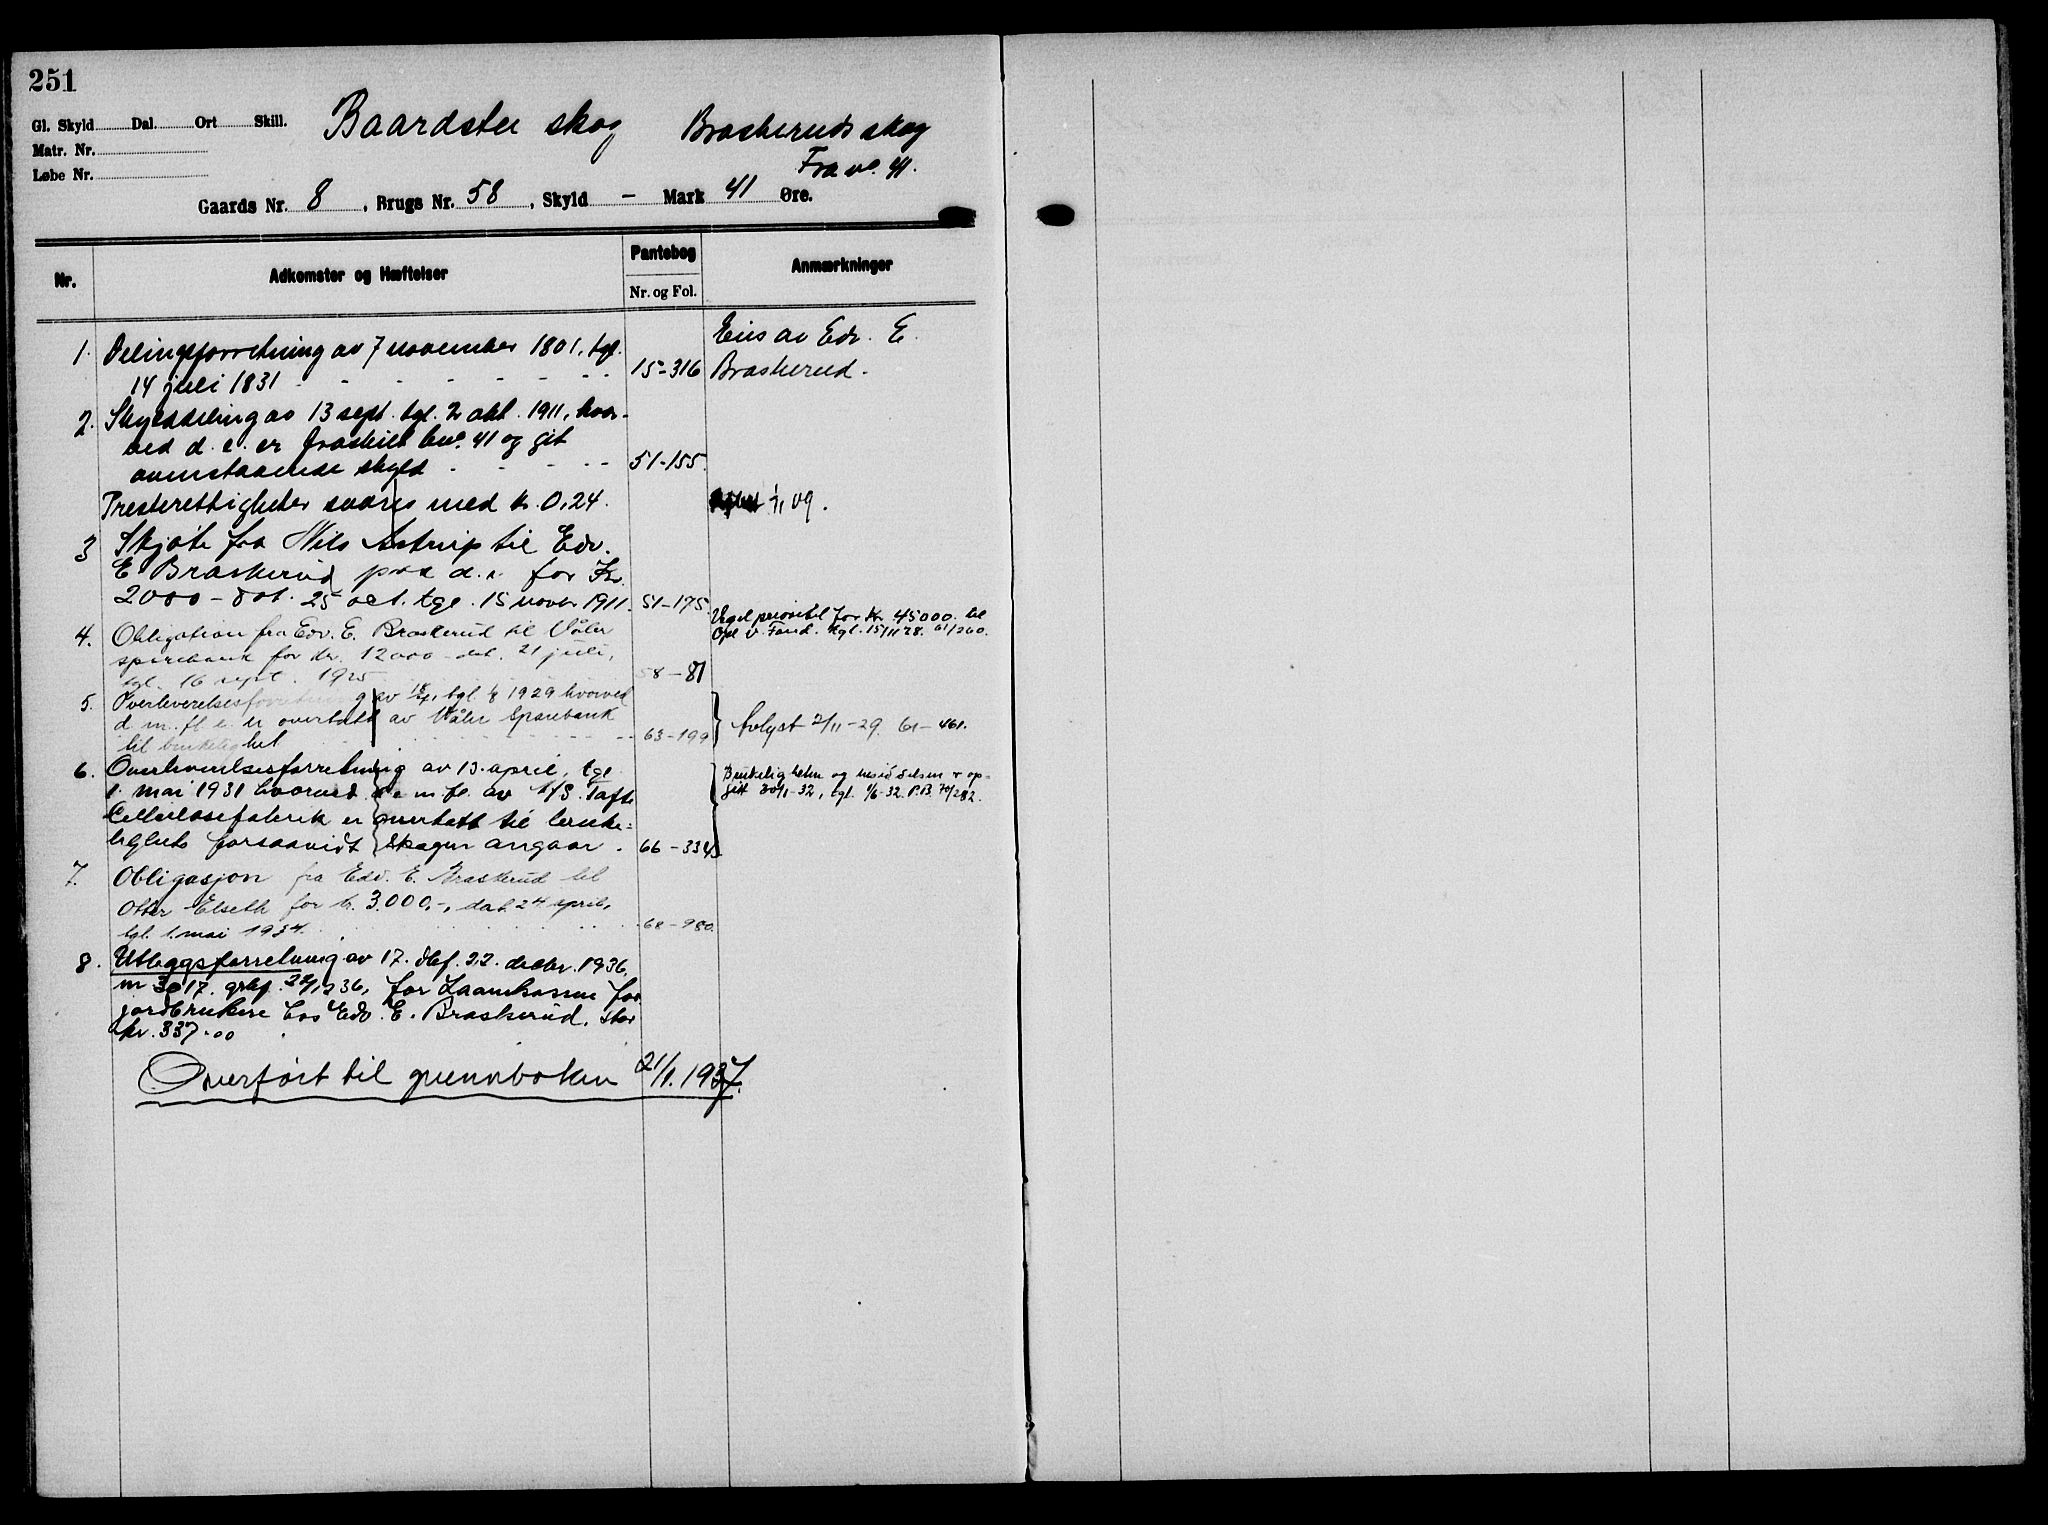 251
Gl. Skyld Dal Ort Skill.
Matr. Nr.
Løbe Nr.
Baardsetu skog Braskeruds skog
Fra no. 41.
Gaards Nr. 8, Brugs Nr. 58, Skyld – Mark 41 Øre.
Nr.
Adkomster og Hæftelser
Pantebog
Nr. og Fol.
Anmærkninger
1. Delingsforretning av 7 november 1801, tgl.
14 juli 1831 - - - - - - - 15-316
Eies av Edv. E.
Braskerud.
2. Skylddeling av 13 sept. tgl. 2 okt. 1911, hvor-
ved d. e. er fraskilt bno. 41 og git
ovenstaaende skyld - - - - - 51-155.
Presterettigheter svares med kr. 0,24.
1/1 09.
3 Skjøte fra Nils Astrup til Edv.
E Braskerud paa d. e. for Kr.
2000 – dat. 25 oct. tgl. 15 novbr 1911. 51-175.
4. Obligation fra Edv. E. Braskerud til Våler
sparebank for kr. 12000 – dat. 21 juli,
tgl. 16 sept. 1925 58-81
Veget prioritet for Kr 45000. til
Opl v. Fond. tgl. 15/11 28. 61/260.
5. Overleverelsesforretning av tgl. 1929 hvorved
d m. fl. e. er overtatt av Våler Sparebank
til brukelighet - - - - - 63-199
Avlyst 2/11-29. 61-461.
6. Overleverelsesforretning av 13. april, tgl.
1. mai 1931 hvorved d. e. m. fl. av A/S. Tofte
Cellulosefabrik er overtatt til bruke-
lighet forsaavidt skogen angaar. 66-334
Brukeligheten og besiddelsen er op-
gitt 30/1-32, tgl. 1/6-32. P.B. 70/282.
7. Obligasjon fra Edv. E. Braskerud til
Otter Elseth for kr. 3.000,-, dat. 24 april,
tgl. 1. mai 1934. 68-980.
8. Utleggsforretning av 17. dbf. 22. decbr. 1936,
nr 3017. grbf. 22/12 36, for Laanekassen for
jordbrukere hos Edv. E. Braskerud, stor
kr. 337.00
Overført til grunnboken 21/1. 1937.